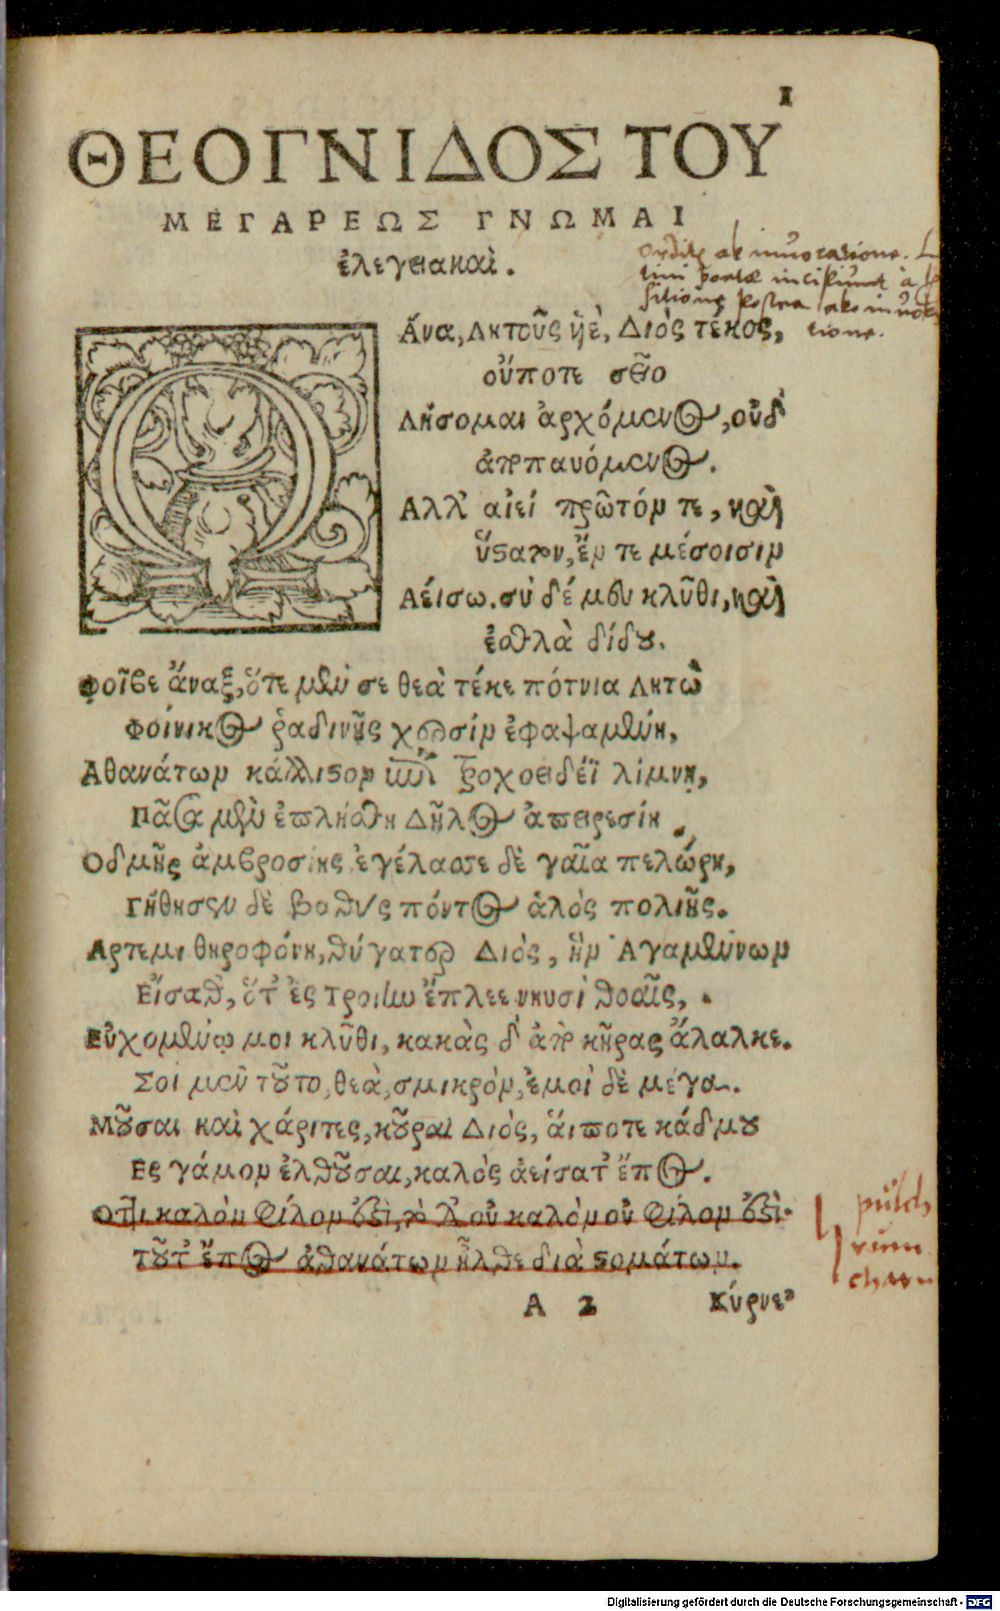 1
ΘΕΟΓΝΙΔΟΣ ΤΟΥ
ΜΕΓΑΡΕΩΣ ΓΝΩΜΑΙ
ἐλεγειακαὶ.
Ordit ab inuocatione.
tini poetae incipiunt à
sitione postea ab inuoca
tione.
Ω
Άνα, Λητοῦς ὑὲ, Διὸς τέκος,
οὔποτε σεῖο
Λήσομαι ἀρχόμενος, οὐδ'
ἀποπαυόμενος.
Αλλ' αἰεί πρῶτόν τε, καὶ
ὕστατον, ἔν τε μέσοισιν
Αείσω. σὺ δέ μευ κλῦθι, καὶ
ἐσθλὰ δίδου.
Φοῖβε ἄναξ, ὅτε μὲν σε θεὰ τέκε πότνια Λητὼ
Φοίνικος ῥαδινῆς χερσὶν ἐφαψαμένη,
Αθανάτων κάλλιστον ἐπὶ τροχοειδέϊ λίμνῃ,
Πᾶσα μὲν ἐπλήσθη Δῆλος ἀπειρεσίη
Οδμῆς ἀμβροσίης, ἐγέλασσε δὲ γαῖα πελώρη,
Γήθησεν δὲ βαθὺς πόντος ἁλὸς πολιῆς.
Αρτεμι θηροφόνη, θύγατερ Διὸς, ἣν Ἀγαμέμνων
Εἵσαθ', ὅτ' ἐς Τροίην ἔπλεε νηυσὶ θοαῖς,
Εὐχομένῳ μοι κλῦθι, κακὰς δ' ἀπὸ κῆρας ἄλαλκε.
Σοὶ μὲν τοῦτο, θεὰ, σμικρὸν, ἐμοὶ δὲ μέγα.
Μοῦσαι καὶ χάριτες, κοῦραι Διὸς, αἵ ποτε κάδμου
Ες γάμον ἐλθοῦσαι, καλὸς ἀείσατ' ἔπος.
Οτι καλὸν φίλον ἐστὶ, τὸ δ' οὐ καλὸν οὐ φίλον ἐστὶ.
τοῦτ' ἔπος ἀθανάτων ἦλθε διὰ στομάτων.
pulch
rum
charum
A 2 Κύρνε
Digitalisierung gefördert durch die Deutsche Forschungsgemeinschaft - DFG